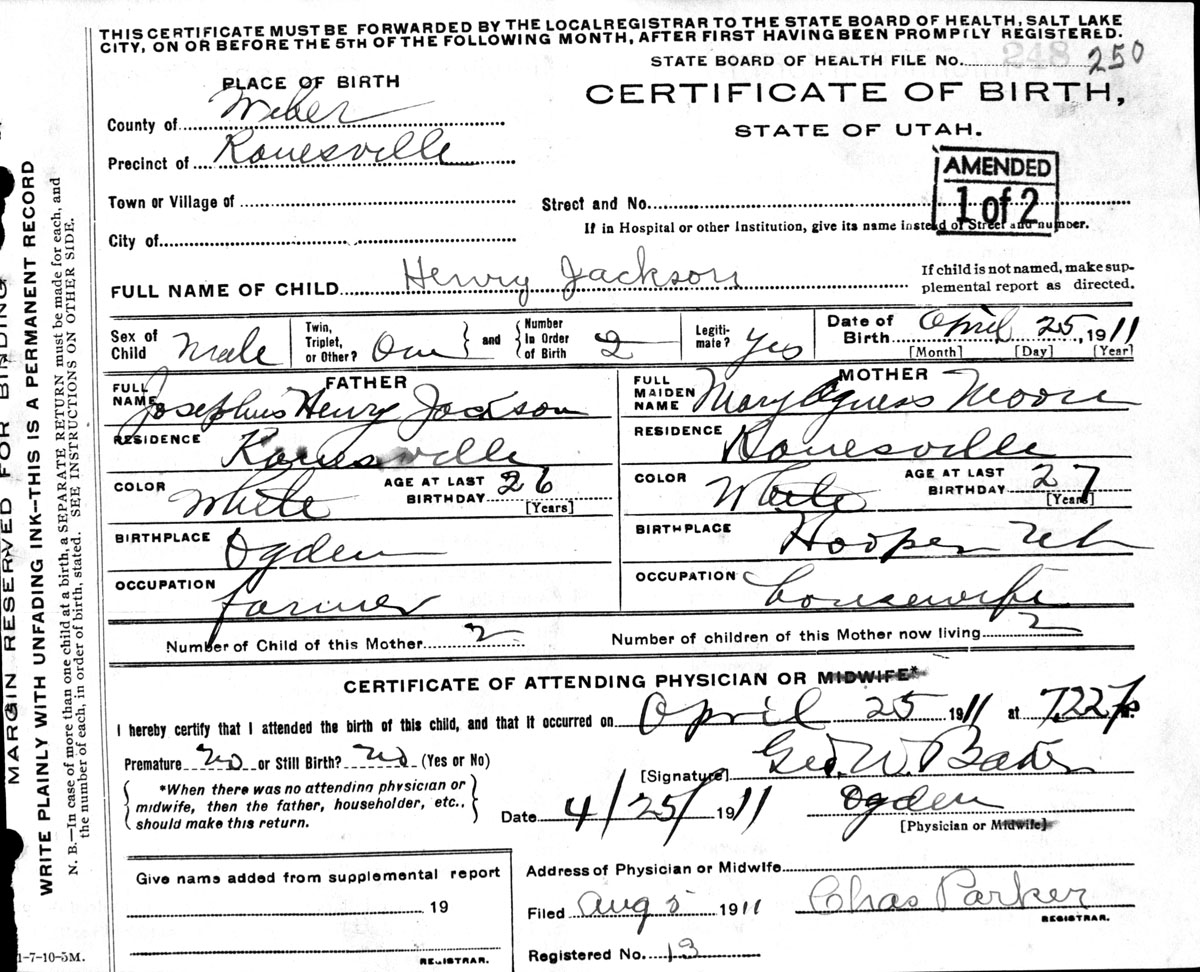 THIS CERTIFICATE MUST BE FORWARDED BY THE LOCAL REGISTRAR TO THE STATE BOARD OF HEALTH, SALT LAKE
CITY, ON OR BEFORE THE 5TH OF THE FOLLOWING MONTH, AFTER FIRST HAVING BEEN PROMPTLY REGISTERED.
STATE BOARD OF HEALTH FILE No. 248 250
PLACE OF BIRTH
CERTIFICATE OF BIRTH,
STATE OF UTAH.
County of Weber
Precinct of Kanesville
AMENDED
1 of 2
Town or Village of
Street and No.
If in Hospital or other Institution, give its name instead of Street and number.
City of
FULL NAME OF CHILD Henry Jackson
If child is not named, make sup-
plemental report as directed.
Sex of Child Male
Twin, Triplet, or Other? One and Number In Order of Birth 2
Legiti-mate? Yes
Date of Birth April 25, 1911
[Month] [Day] [Year]
FATHER
FULL NAME Josephus Henry Jackson
RESIDENCE Kanesville
COLOR White AGE AT LAST BIRTHDAY 26
[Years]
BIRTHPLACE Ogden
OCCUPATION farmer
MOTHER
FULL MAIDEN NAME Mary Agness Moore
RESIDENCE Kanesville
COLOR White AGE AT LAST BIRTHDAY 27
[Years]
BIRTHPLACE Hooper Utah
OCCUPATION housewife
Number of Child of this Mother 2 Number of children of this Mother now living 2
CERTIFICATE OF ATTENDING PHYSICIAN OR MIDWIFE*
I hereby certify that I attended the birth of this child, and that it occurred on April 25 1911 at 7.22 P M.
Premature No or Still Birth? No (Yes or No)
[Signature] Geo. W. Baker
*When there was no attending physician or
midwife, then the father, householder, etc.,
should make this return.
Date 4/25/1911 Ogden
[Physician or Midwife]
Give name added from supplemental report
19
REGISTRAR.
Address of Physician or Midwife
Filed Aug 5 1911 Chas Parker
REGISTRAR.
Registered No. 13
1-7-10-5M.
MARGIN RESERVED FOR BINDING
WRITE PLAINLY WITH UNFADING INK—THIS IS A PERMANENT RECORD
N. B.—In case of more than one child at a birth, a SEPARATE RETURN must be made for each, and
the number of each, in order of birth, stated. SEE INSTRUCTIONS ON OTHER SIDE.